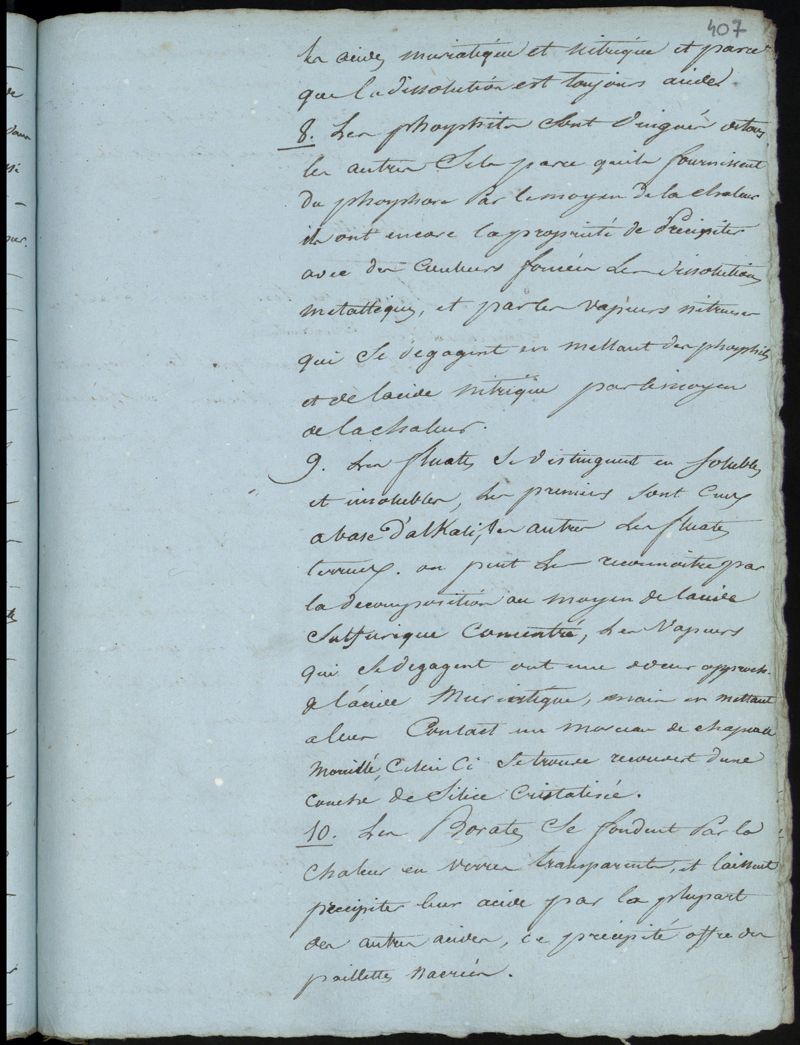 407
les acides muriatique et nitrique et parce
que la dissolution est toujours acide
8. Les phosphites sont distingués de tous
les autres Sels parce qu'ils fournissent
du phosphore Par le moyen de la chaleur
ils ont encore la propriété de Précipiter
avec des Couleurs foncées les dissolutions
metalliques, et par les vapeurs nitreuses
qui Se degagent en mettant des phosphites
et de l'acide nitrique par le moyen
de la chaleur.
9. Les fluates se distinguent en solubles
et insolubles, les premiers sont Ceux
a base d'alKali, les autres les fluates
terreux. on peut les reconnoitre par
la decomposition au moyen de lacide
Sulfurique Concentré, les Vapeurs
qui se degagent ont une odeur approch.
de l'acide Muriatique, mais en mettant
a leur Contact un morceau de chapeau
Mouillé, Celui Ci Se trouve recouvert dune
couche de Silice Cristalisée.
10. Les Borates Se fondent Par la
chaleur en verres transparents, et laissent
precipiter leur acide par la plupart
des autres acides, ce précipité offre des
paillettes nacrées.